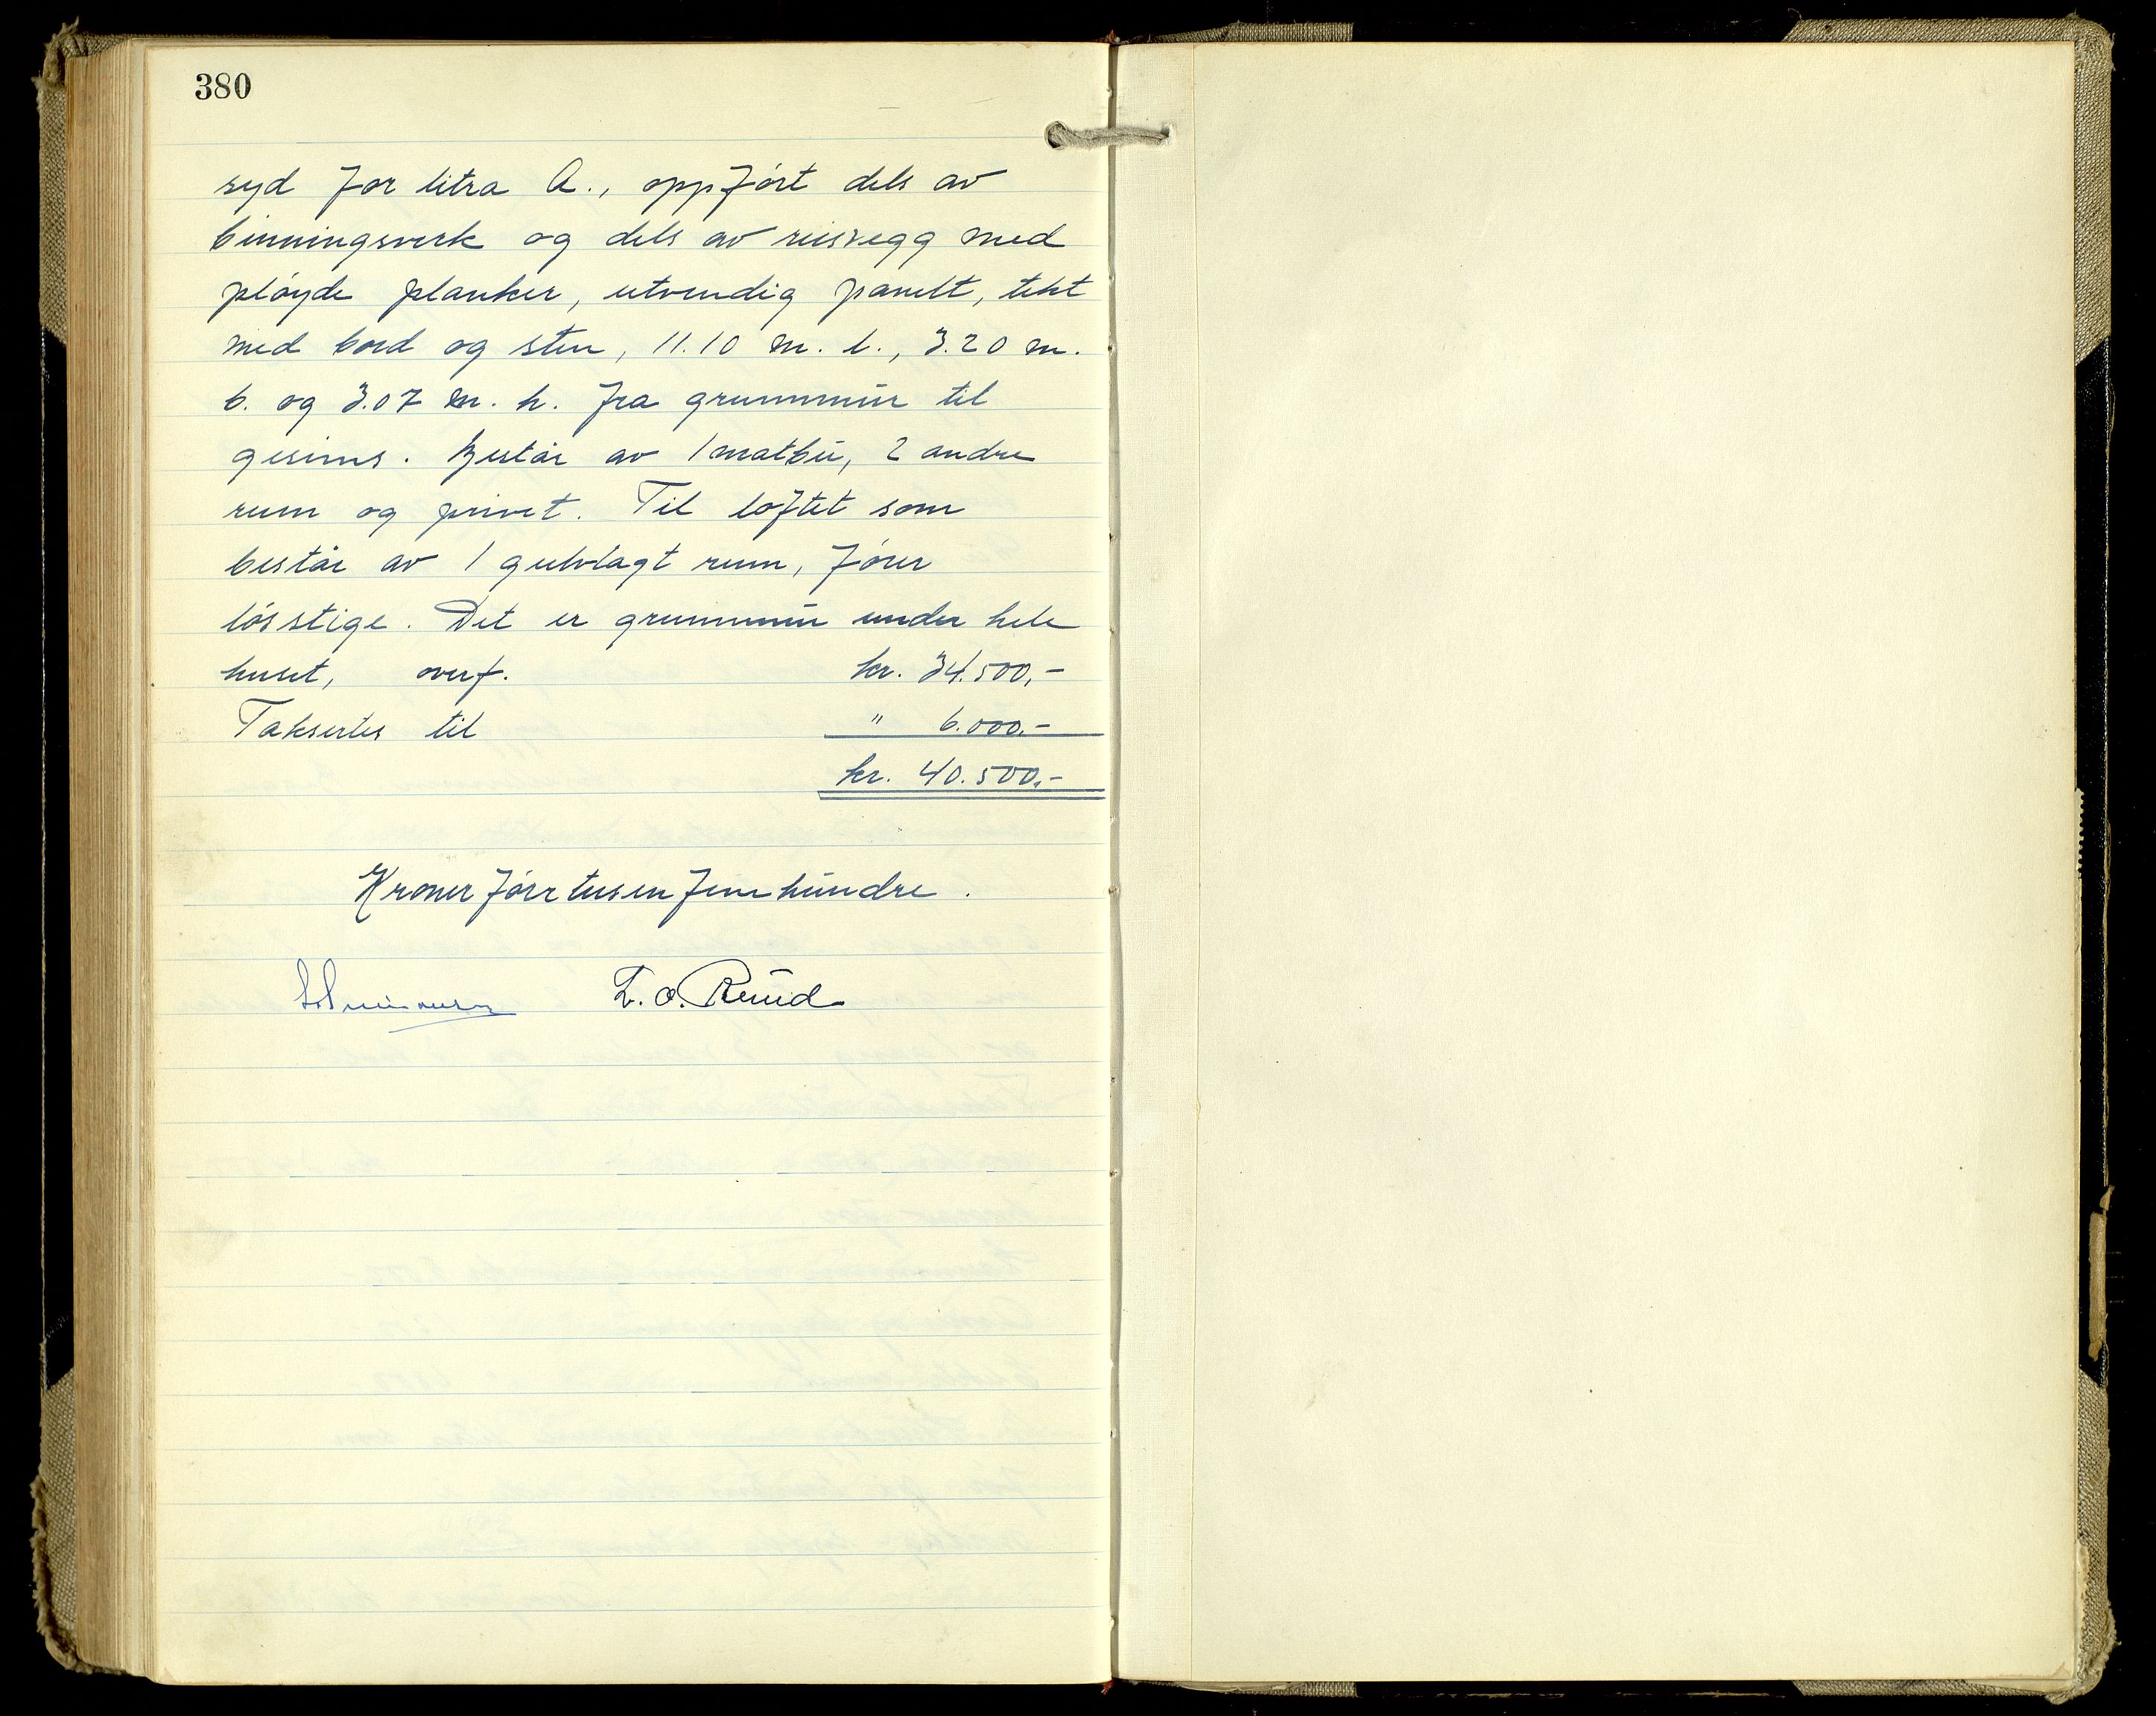 380
syd for litra A., oppført dels av
binningsverk og dels av reisvegg med
pløyde planker, utvendig panelt, tekt
med bord og sten, 11.10 m. l., 3.20 m.
b. og 3.07 m. h. fra grunnmur til
gesims. Består av 1 matbu, 2 andre
rum og privet. Til loftet som
består av 1 gulvlagt rum, fører
løsstige. Det er grunnmur under hele
huset, overf. kr. 34.500,-
Taksertes til " 6.000.-
kr. 40.500,-
Kroner førr tusen fem hundre.
O. Ruud